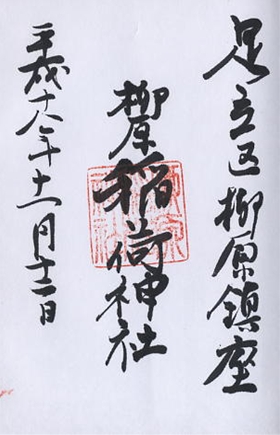 足立区柳原鎮座
柳原稲荷神社
平成十八年十一月十二日